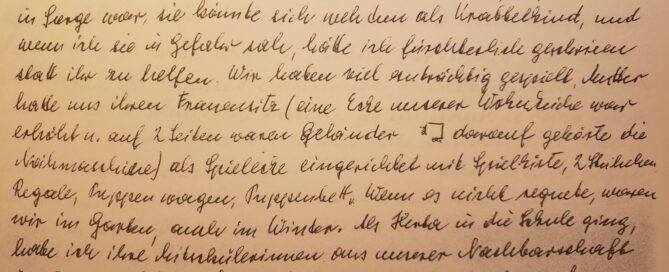 in Sorge war, sie könnte sich weh tun als Krabbelkind, und
wenn ich sie in Gefahr sah, hätte ich fürchterlich geschrieen
statt ihr zu helfen. Wir haben viel einträchtig gespielt, Mutter
hatte uns ihren Fenstersitz (eine Ecke unserer Wohnküche war
erhöht u. auf 2 Seiten waren Geländer darauf gehörte die
Nähmaschine) als Spielecke eingerichtet mit Spielkiste, 2 Stühlchen
Regale, Puppenwagen, Puppenbett. Wenn es nicht regnete, waren
wir im Garten, auch im Winter. Als Herta in die Schule ging,
habe ich ihre Mitschülerinnen aus unserer Nachbarschaft